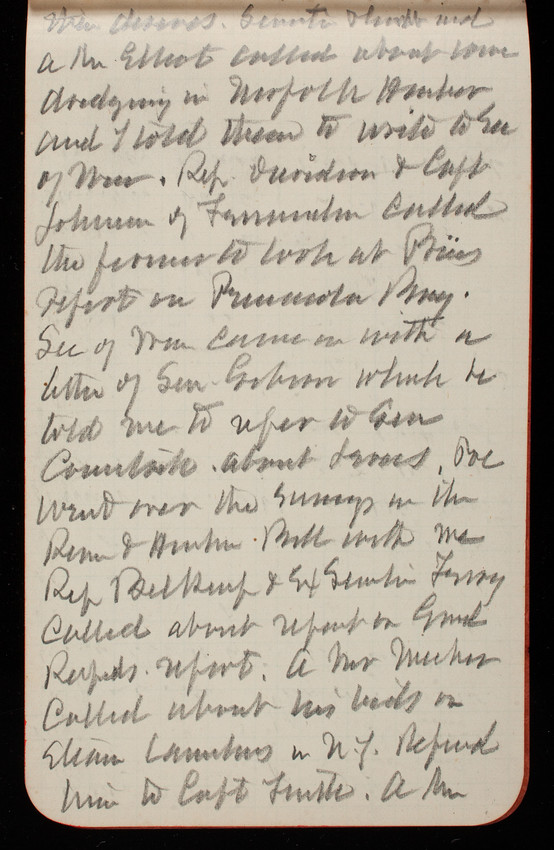 desires. Senator and
a Mr Elliot called about some
dredging in Norfolk Harbor
and I told them to write to Sec
of War. Rep. Davidson & Capt
Johnson of Fernandina called
the former to look at Prices
report on Pensacola Bay.
Sec of War came in with a
letter of Sen. Gibson which he
told me to refer to Gen
Comstock about Levees. Also
went over the Surveys in the
River & Harbor Bill with me
Rep Belknap & Ex Senator Ferry
called about report on Grand
Rapids report. A Mr Meeker
called about his bids on
Steam Launches in N.Y. Referred
him to Capt . A Mr